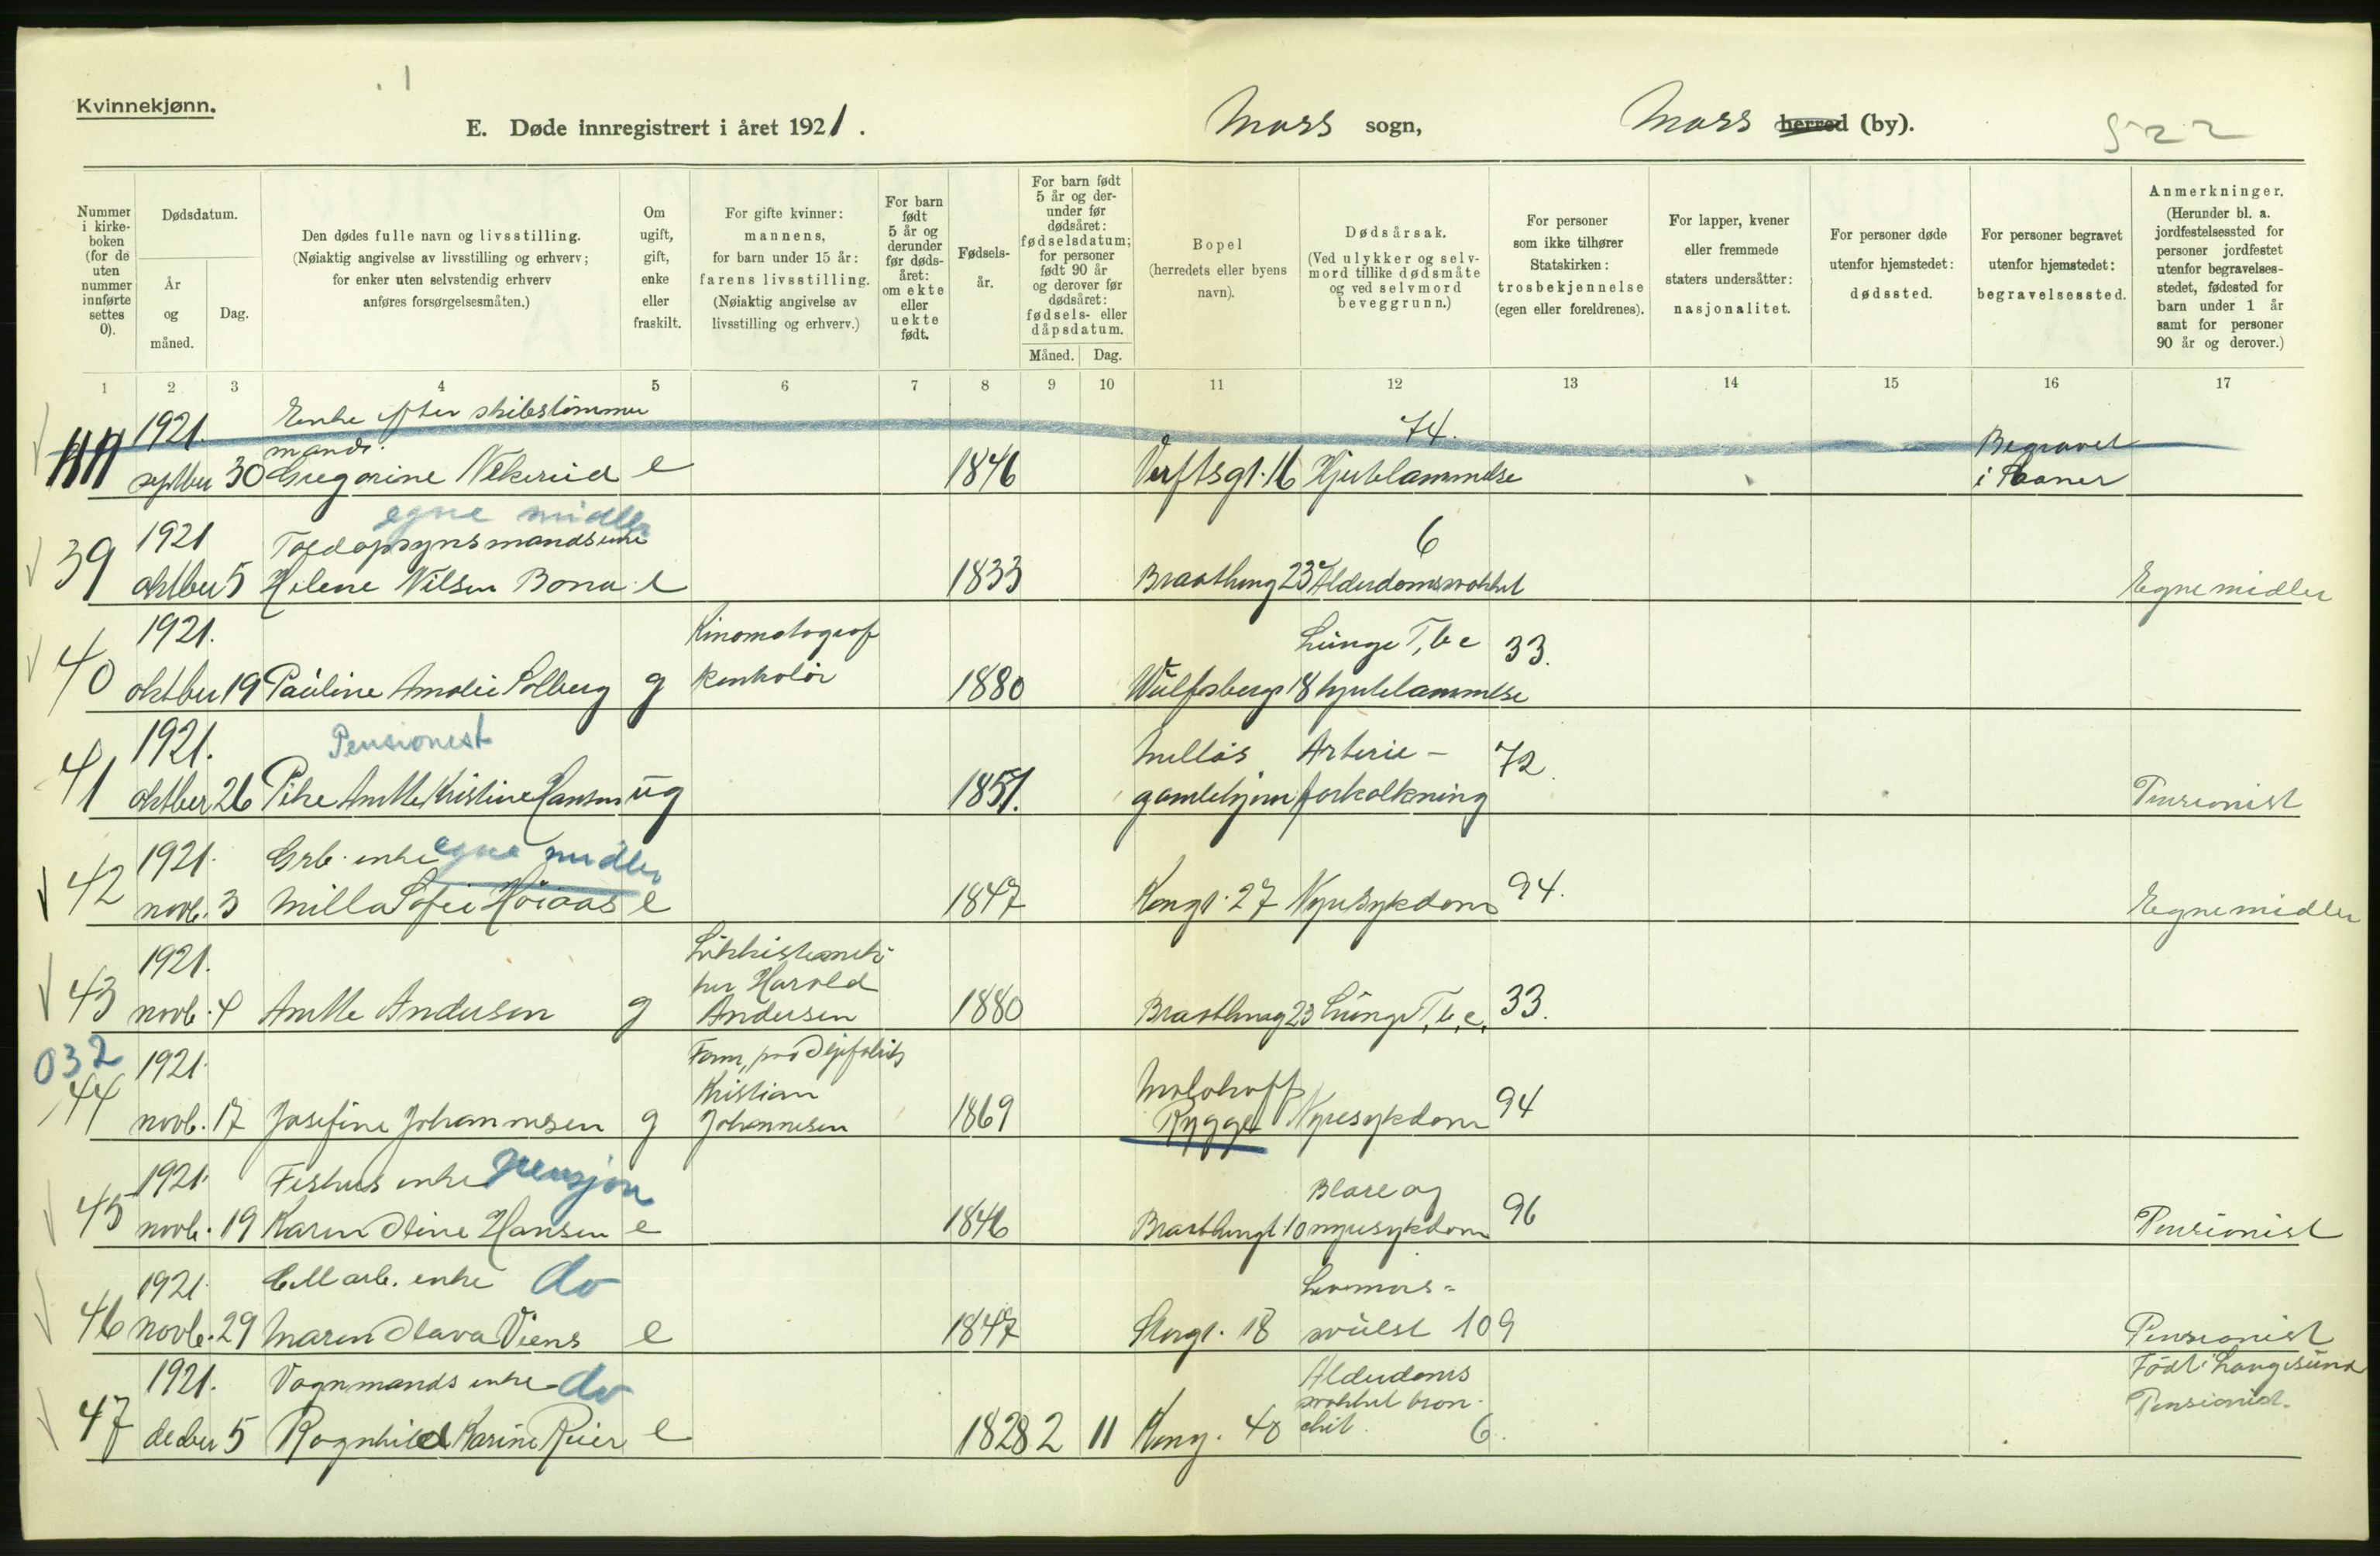 Kvinnekjønn.
E. Døde innregistrert i året 1921.
Moss sogn,
Moss herred (by).
522
Nummer i kirkeboken (for de uten nummer innførte settes 0).
Dødsdatum.
År og måned.
Dag.
Den dødes fulle navn og livsstilling.
(Nøiaktig angivelse av livsstilling og erhverv;
for enker uten selvstendig erhverv
anføres forsørgelsesmåten.)
Om ugift, gift, enke eller fraskilt.
For gifte kvinner:
mannens,
for barn under 15 år:
farens livsstilling.
(Nøiaktig angivelse av
livsstilling og erhverv.)
For barn født 5 år og derunder før dødsåret: om ekte eller uekte født.
Fødselsår.
For barn født 5 år og derunder før dødsåret: fødselsdatum; for personer født 90 år og derover før dødsåret: fødsels- eller dåpsdatum.
Måned. Dag.
Bopel
(herredets eller byens
navn).
Dødsårsak.
(Ved ulykker og selvmord tillike dødsmåte og ved selvmord beveggrunn.)
For personer
som ikke tilhører
Statskirken:
trosbekjennelse
(egen eller foreldrenes).
For lapper, kvener
eller fremmede
staters undersåtter:
nasjonalitet.
For personer døde
utenfor hjemstedet:
dødssted.
For personer begravet
utenfor hjemstedet:
begravelsessted.
Anmerkninger.
(Herunder bl. a.
jordfestelsessted for
personer jordfestet
utenfor begravelses-
stedet, fødested for
barn under 1 år
samt for personer
90 år og derover.)
1 2 3 4 5 6 7 8 9 10 11 12 13 14 15 16 17
1921. Enke efter skibstømmer 74. Begravet
mands.
septbr 30 Gregorine Nekerud e 1846 Verftsgt. 16 Hjertelammelse i Saaner
egne midler
39 1921 Toldopsynsmandsenke 6
oktber 5 Helene Nilsen Borna e 1833 23 Alderdomssvakhet Egne midler
1921. Kinomatograf Lunge T, b c 33.
40 oktber 19 Pauline Amalie Solberg g kontrolør 1880 Wulfsbergs 18 hjertelammelse
1921. Pensionist Melløs Arterie- 72.
41 oktber 26 Pike Anette Kristine Hansen ug 1851. gamlehjem forkalkning Pensionist
1921. Grb. enke egne midler
42 novb. 3 Milla Sofie Höiaas e 1847 Kongt. 27 Nyresykdom 94. Egne midler
1921. Likkistemaker
Harald
43 novb. 4 Anette Andersen g Andersen 1880 23 Lunge T, b, c, 33.
032
1921. Form,
Kristian Molohoff
44 novb. 17 Josefine Johannesen g Johannesen 1869 Rygge Nyresykdom 94
1921. Fiskers enke pensjon Blære og
45 novb. 19 Karen Oline Hansen e 1846 10 nyresykdom 96 Pensionist
1921. Cell arb. enke do Livmors-
46 novb. 29 Maren Olava Viens e 1847 Storgt. 18 svulst 109 Pensionist
1921. Vognmands enke do Alderdoms Født i Langesund
svakhet bron- Pensionist.
47 decber 5 Ragnhild Karine Reier e 1828 2 11 Kong. 40 chit. 6.